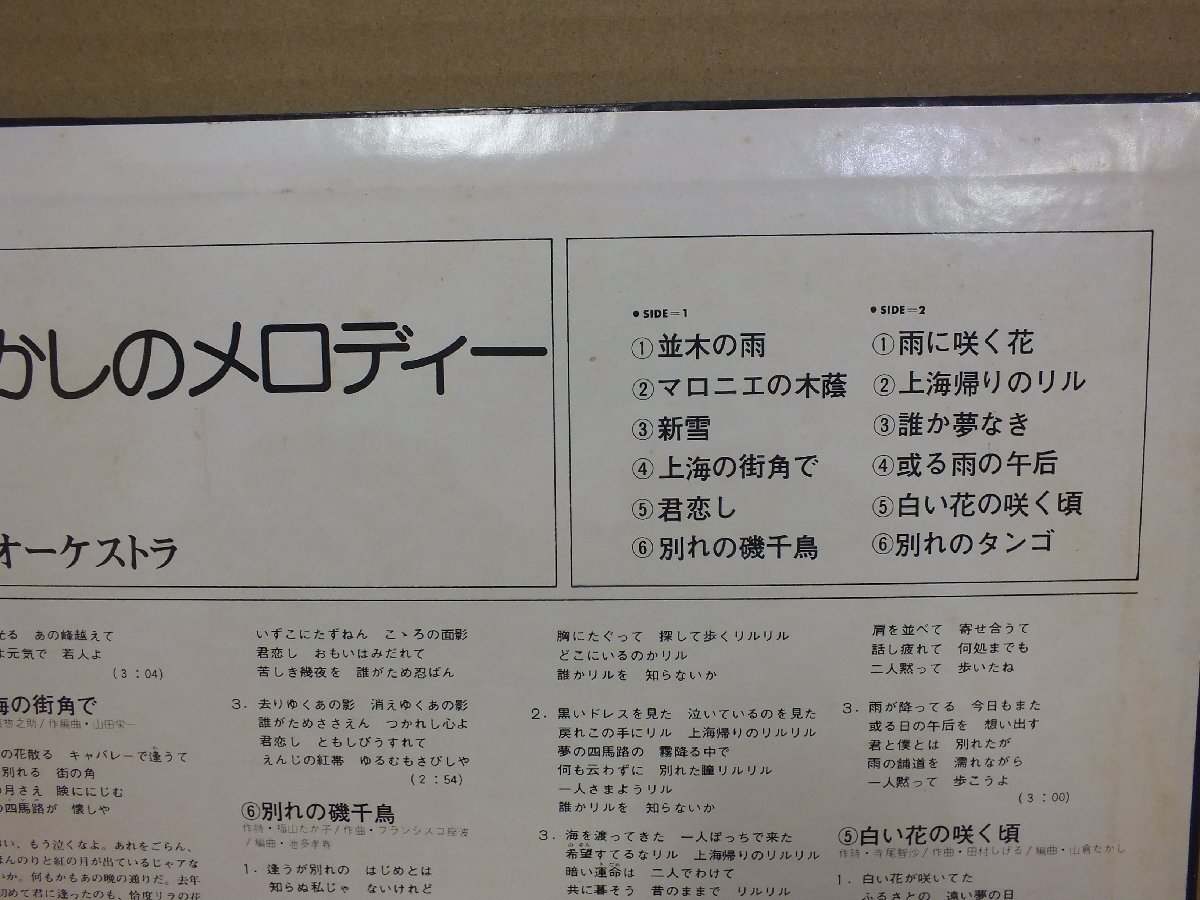 かしのメロディー
オーケストラ
● SIDE=1
①並木の雨
②マロニエの木蔭
③新雪
④上海の街角で
⑤君恋し
⑥別れの磯千鳥
● SIDE=2
①雨に咲く花
②上海帰りのリル
③誰か夢なき
④或る雨の午后
⑤白い花の咲く頃
⑥別れのタンゴ
る あの峰越えて
元気で 若人よ
(3:04)
海の街角で
惣之助/作編曲・山田栄一
の花散る キャバレーで逢うて
別れる 街の角
月さえ 瞼ににじむ
の四馬路が 懐しや
い、もう泣くなよ。あれをごらん、
ほんのりと紅の月が出ているじゃアな
いか。何もかもあの晩の通りだ。去年
初めて君に逢ったのも、恰度リラの花
いずこにたずねん こゝろの面影
君恋し おもいはみだれて
苦しき幾夜を 誰がため忍ばん
3. 去りゆくあの影 消えゆくあの影
誰がためささえん つかれし心よ
君恋し ともしびうすれて
えんじの紅帯 ゆるむもさびしや
(2:54)
⑥別れの磯千鳥
作詩・福山たか子/作曲・フランシスコ座波
/編曲・池多孝春
1. 逢うが別れの はじめとは
知らぬ私じゃ ないけれど
胸にたぐって 探して歩くリルリル
どこにいるのかリル
誰かリルを 知らないか
2. 黒いドレスを見た 泣いているのを見た
戻れこの手にリル 上海帰りのリルリル
夢の四馬路の 霧降る中で
何も云わずに 別れた瞳リルリル
一人さまようリル
誰かリルを 知らないか
3. 海を渡ってきた 一人ぼっちで来た
希望すてるなリル 上海帰りのリルリル
暗い運命は 二人でわけて
共に暮そう 昔のままで リルリル
肩を並べて 寄せ合うて
話し疲れて 何処までも
二人黙って 歩いたね
3. 雨が降ってる 今日もまた
或る日の午后を 想い出す
君と僕とは 別れたが
雨の舗道を 濡れながら
一人黙って 歩こうよ
(3:00)
⑤白い花の咲く頃
作詩・寺尾智沙/作曲・田村しげる/編曲・山倉たかし
1. 白い花が咲いてた
ふるさとの 遠い夢の日